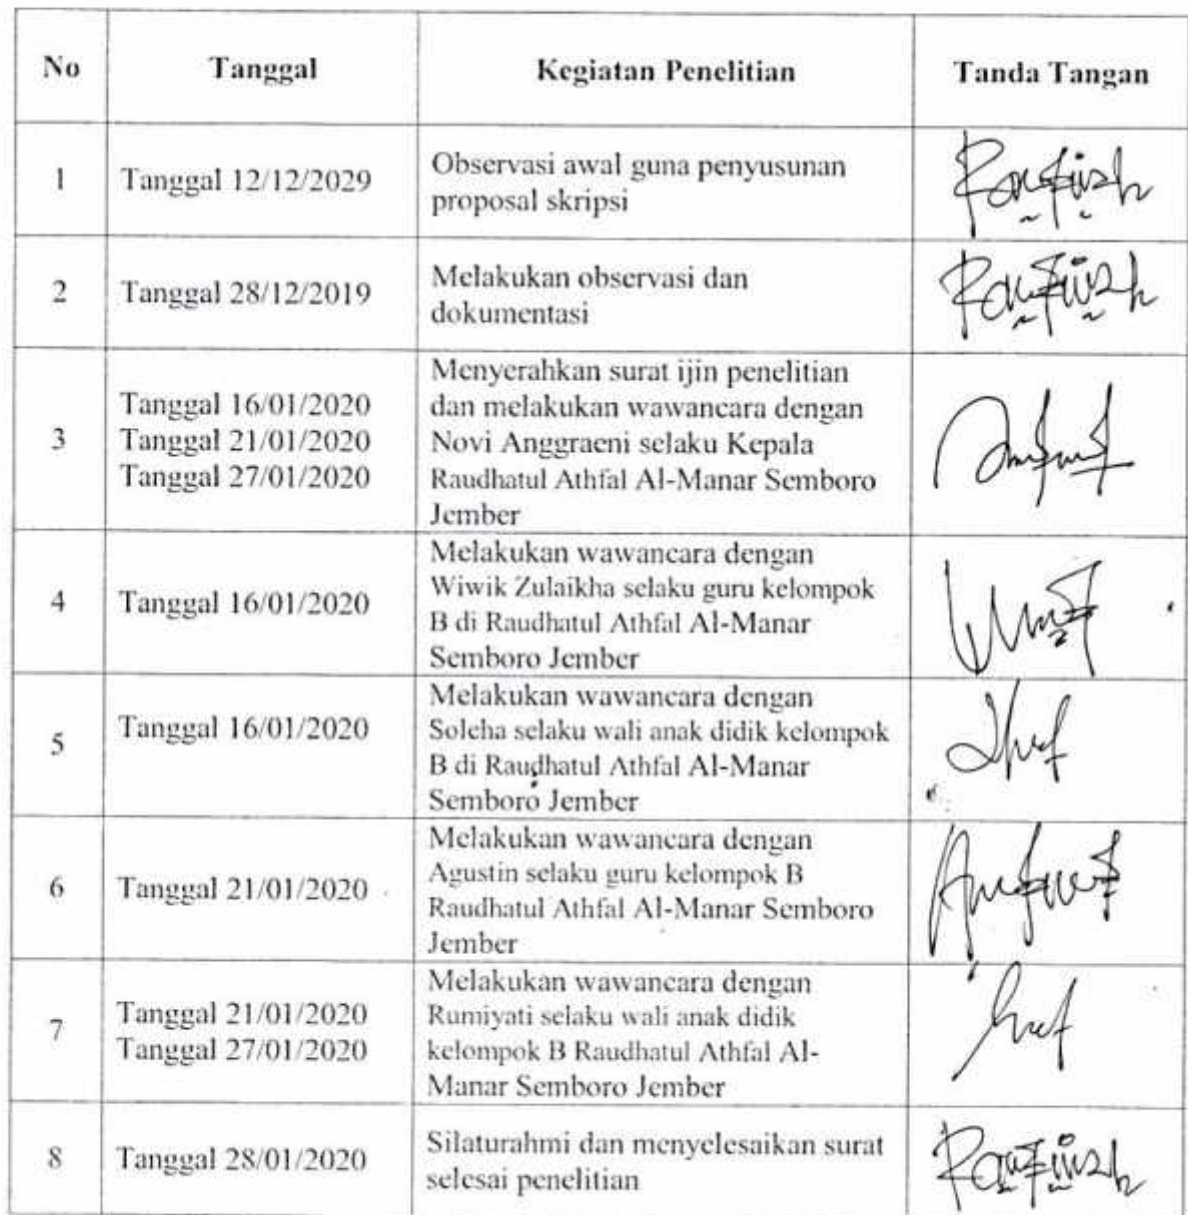 No Tanggal Kegiatan Penelitian Tanda Tangan
1 Tanggal 12/12/2029 Observasi awal guna penyusunan
proposal skripsi
2 Tanggal 28/12/2019 Melakukan observasi dan
dokumentasi
3
Tanggal 16/01/2020
Tanggal 21/01/2020
Tanggal 27/01/2020
Menyerahkan surat ijin penelitian
dan melakukan wawancara dengan
Novi Anggraeni selaku Kepala
Raudhatul Athfal Al-Manar Semboro
Jember
4 Tanggal 16/01/2020
Melakukan wawancara dengan
Wiwik Zulaikha selaku guru kelompok
B di Raudhatul Athfal Al-Manar
Semboro Jember
5 Tanggal 16/01/2020
Melakukan wawancara dengan
Soleha selaku wali anak didik kelompok
B di Raudhatul Athfal Al-Manar
Semboro Jember
6 Tanggal 21/01/2020
Melakukan wawancara dengan
Agustin selaku guru kelompok B
Raudhatul Athfal Al-Manar Semboro
Jember
7
Tanggal 21/01/2020
Tanggal 27/01/2020
Melakukan wawancara dengan
Rumiyati selaku wali anak didik
kelompok B Raudhatul Athfal Al-
Manar Semboro Jember
8 Tanggal 28/01/2020
Silaturahmi dan menyelesaikan surat
selesai penelitian